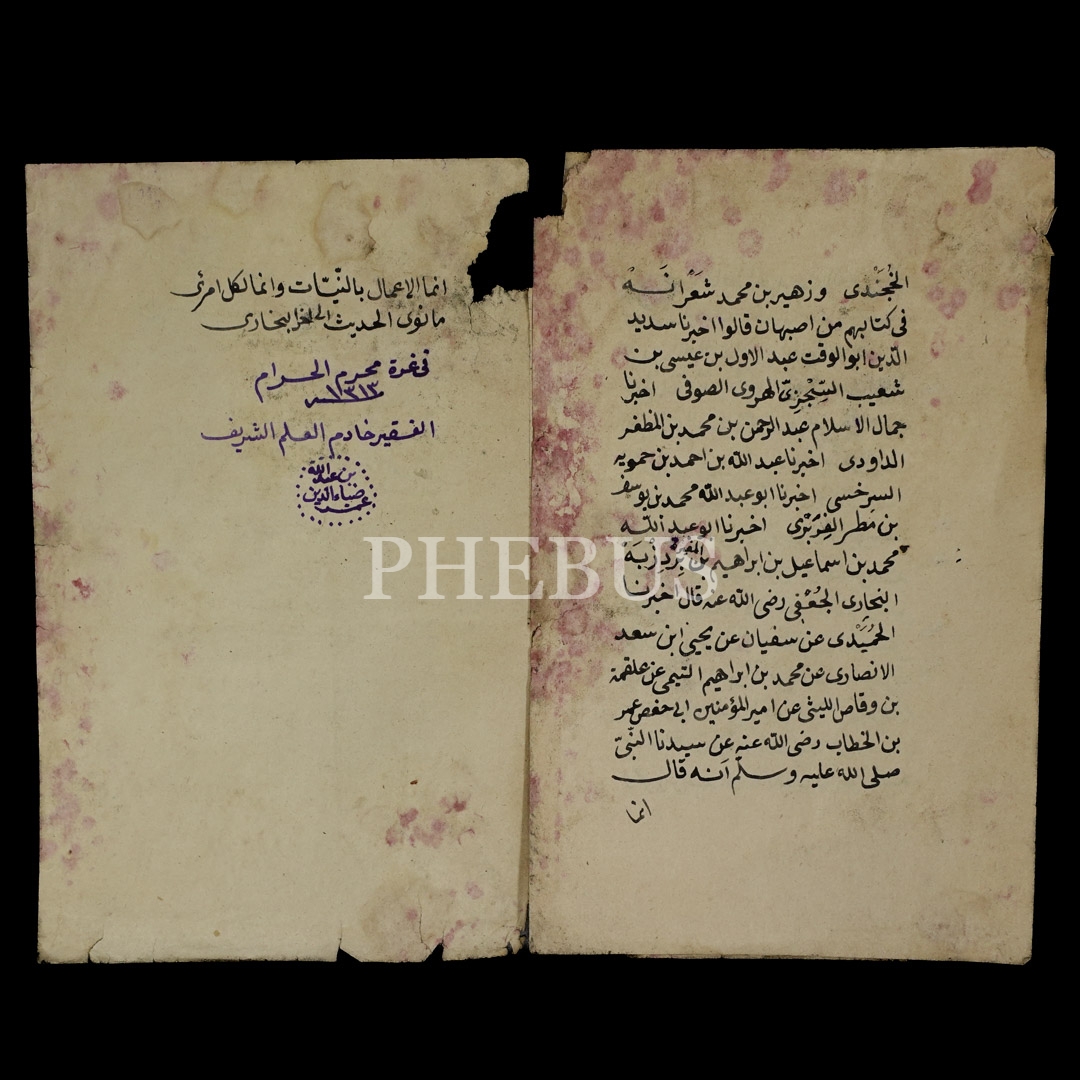 الخُجَنْدى وزهير بن محمد شَعْرَانَهْ
فى كتابهم من اصبهان قالوا اخبرنا سديد
الدّين ابو الوقت عبد الاول بن عيسى بن
شعيب السِّجْزِىّ الهروى الصوفى اخبرنا
جمال الاسلام عبد الرحمن بن محمد بن المظفر
الداودى اخبرنا عبد الله بن احمد بن حمويه
السرخسى اخبرنا ابو عبد الله محمد بن يوسف
بن مَطَر الفِرَبْرى اخبرنا ابو عبد الله
محمد بن اسماعيل بن ابراهيم بن المغيرة بَرْدِزْبَهْ
البخارى الجُعْفِى رضى الله عنه قال اخبرنا
الحُمَيْدى عن سفيان عن يحيى ابن سعد
الانصارى عن محمد بن ابراهيم التيمى عن علقمة
بن وقاص الليثى عن امير المؤمنين ابى حفص عمر
بن الخطاب رضى الله عنه عن سيدنا النّبىّ
صلى الله عليه وسلّم انه قال
انما
انما الاعمال بالنّيّات وانما لكل امرئ
ما نوى الحديث البخارى
فى غرة محرم الحرام
١٣١٣
الفقير خادم العلم الشريف
بن عبد الله
ضياء الدين
PHEBUS